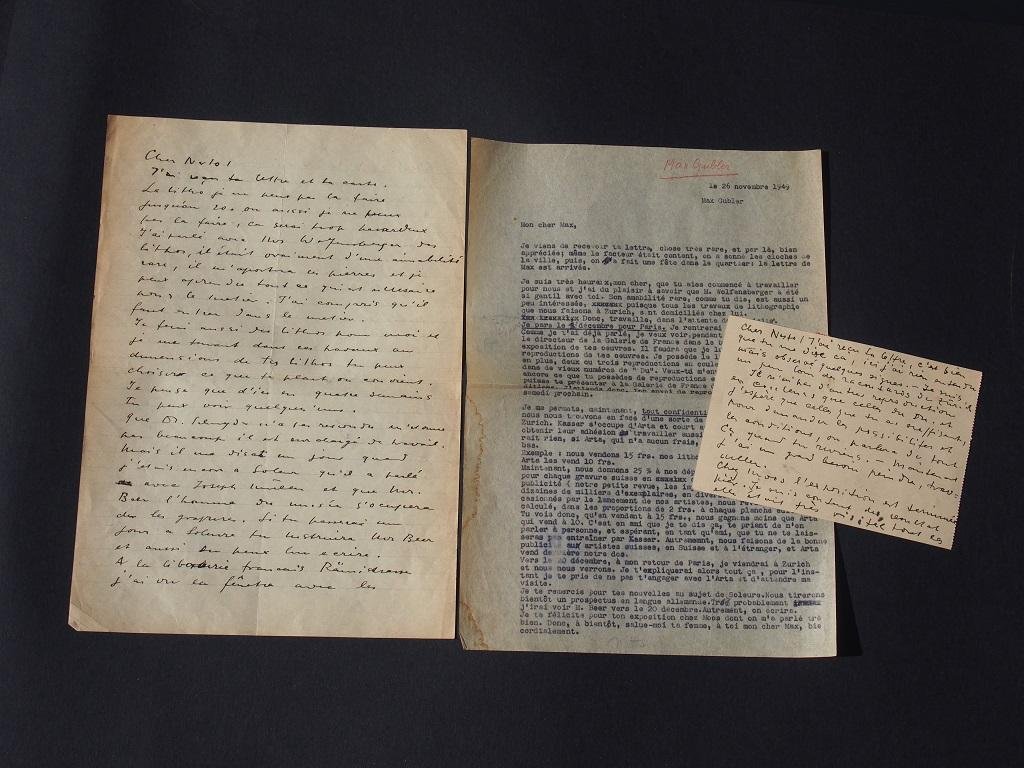 Cher Nesto!
J'ai reçu ta lettre et ta carte.
La litho je ne peux pas la faire
jusqu'au 20. ou aussi je ne peux
pas la faire, ça serai trop
J'ai parlé avec Mrs Wolfensberger des
lithos, il était vraiment d'une amabilité
rare, il m'apportera les pierres et je
peut aprendre tout ce qui est nécessaire
pour le métier. J'ai compris qu'il
faut entrer dans le métier.
Je ferai aussi des lithos pour moi et
je me tenant dans ces travaux au
dimensions de tes lithos tu peut
choisir ce que te plait ou convient.
Je pense que d'ici en quatre semaines
tu peut voir quelques'unes.
que Dr.
pas beaucoup il est surchargé de travail.
Mais il me disait un jour quand
j'étais encore a Soleure qu'il a parlé
avec Joseph Müller et que Mr.
Beer l'homme du musée s'occupera
des gravures. Si tu
pour Soleure tu Mrs Beer
et aussi tu peux lui ecrire.
A la librairie français Rämistrasse
j'ai vu la fenêtre avec les
Max Gubler
le 26 novembre 1949
Max Gubler
Mon cher Max,
Je viens de recevoir ta lettre, chose très rare, et par là, bien
appréciée; même le facteur était content, on a sonné les cloches de
la ville, puis, on a fait une fête dans le quartier: la lettre de
Max est arrivée.
Je suis très heureux, mon cher, que tu aies commencé à travailler
pour nous et j'ai du plaisir à savoir que M. Wolfensberger a été
si gentil avec toi. Son amabilité rare, comme tu dis, est aussi un
peu intéressée, xxxxxxx puisque tous les travaux de lithographie
que nous faisons à Zurich, sont domiciliés chez lui.
Donc, travaille, dans l'attente de
Je pars le décembre pour Paris. Je rentrerai
Comme je t'ai déjà parlé, je veux voir, pendant
le directeur de la Galerie de France dans le
exposition de tes oeuvres. Il faudra que je
reproductions de tes oeuvres. Je possède le
en plus, deux ou trois reproductions en coule
dans de vieux numéros de "Du". Veux-tu m'en
encore que tu possèdes de reproductions e
puisse te présenter à la Galerie de France
samedi prochain.
Je me permets, maintenant, tout confidenti
nous nous trouvons en face d'une sorte de
Zurich. Kasser s'occupe d'Arta et court
obtenir leur adhésion travailler aussi
rait rien, si Arta, qui n'a aucun frais,
bas.
Exemple : nous vendons 15 frs. nos lith
Arta les vend 10 frs.
Maintenant, nous donnons 25 % à nos dép
pour chaque gravure suisse en
publicité ( notre petite revue, les
dizaines de milliers d'exemplaires, en diver
casionnés par le lancement de nos artistes, nous
calculé, dans les proportions de 2 frs. à chaque planche
Tu vois donc, qu'en vendant à 15 frs., nous gagnons moins que Arta
qui vend à 10. C'est en ami que je te dis ça, te priant de n'en
parler à personne, et espérant, en tant qu'ami, que tu ne te lais-
seras pas entraîner par Kasser. Autrement, nous faisons de la bonne
publicité aux artistes suisses, en Suisse et à l'étranger, et Arta
vend derrière notre dos.
Vers le 20 décembre, à mon retour de Paris, je viendrai à Zurich
et nous nous verrons. Je t'expliquerai alors tout ça, pour l'ins-
tant je te prie de ne pas t'engager avec l'Arta et d'attendre ma
visite.
Je te remercie pour tes nouvelles au sujet de Soleure. Nous tirerons
bientôt un prospectus en langue allemande. Très probablement
j'irai voir M. Beer vers le 20 décembre. Autrement, on écrira.
Je te félicite pour ton exposition chez Moos dont on m'a parlé très
bien. Donc, à bientôt, salue-moi ta femme, à toi mon cher Max, bie
cordialement.
Cher Nesto! J'ai reçu ta lettre, c'est bien
que tu me dise ça, j'ai rien entendu
mais observé quelques signes. Je suis
un peu loin des racontards de Zurich.
Je n'ai pas d'autres reproductions
en couleurs que celles du Du, et
j'espère que celles que tu as suffisent,
pour demander les possibilités et
les conditions, on parlera du tout
ça quand tu reviens. Maintenant
j'ai un grand besoin, peindre, trav-
ailler.
Chez Moos l'exposition est terminée
je suis content, des
elle était très visitée tout les